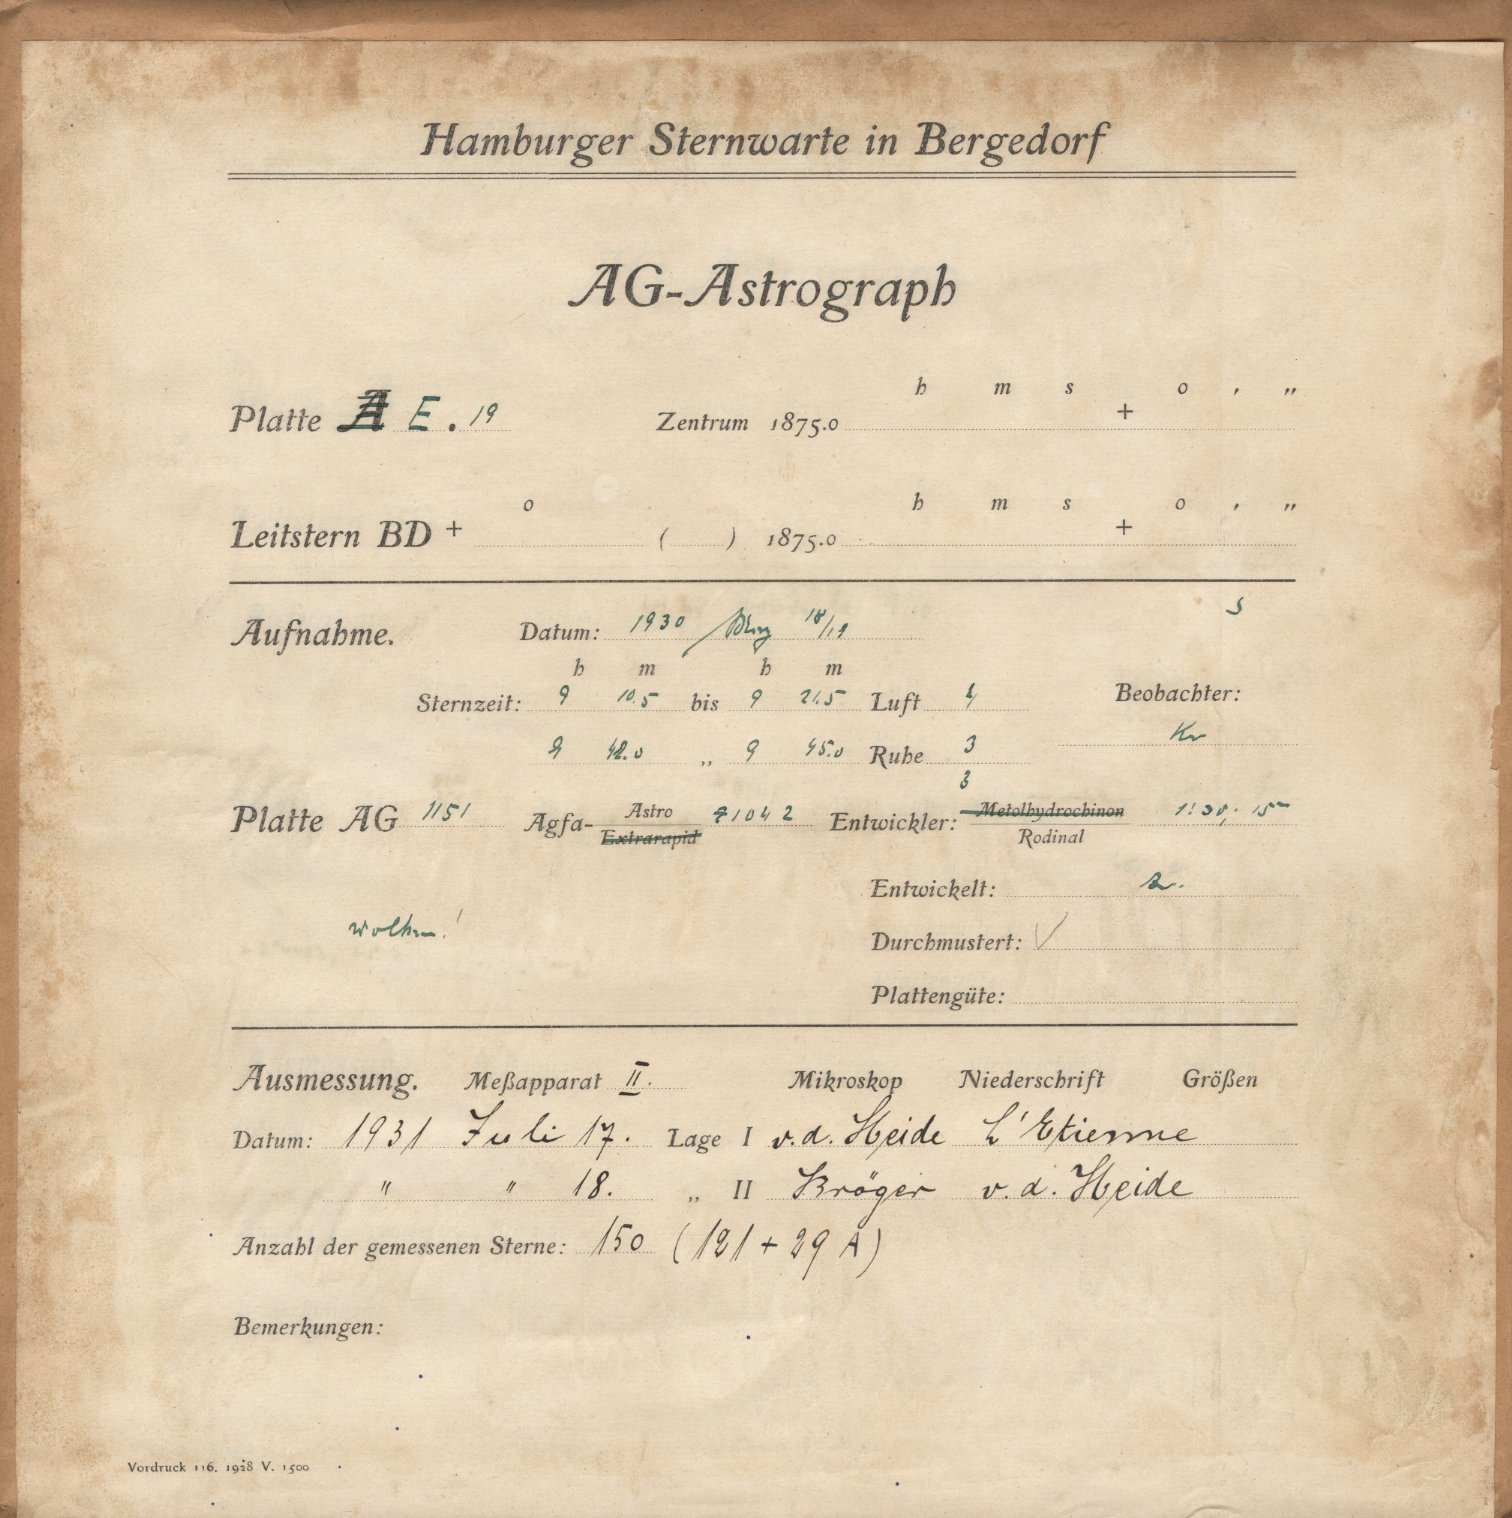 Hamburger Sternwarte in Bergedorf
AG-Astrograph
h m s o ' "
Platte E. 19 Zentrum 1875.0 +
o h m s o ' "
Leitstern BD + ( ) 1875.0 +
S
Aufnahme. Datum: 1930 März 18/19
h m h m
Sternzeit: 9 10.5 bis 9 21.5 Luft Beobachter:
9 42.0 " 9 45.0 Ruhe 3 Kr
3
Platte AG 1151 Agfa- Astro Extrarapid 1042 Entwickler: Metolhydrochinon Rodinal 1:30; 15
Entwickelt:
Wolken! Durchmustert: ✓
Plattengüte:
Ausmessung. Meßapparat II. Mikroskop Niederschrift Größen
Datum: 1931 Juli 17. Lage I v.d. Heide L'Etienne
" " 18. " II Kröger v.d. Heide
Anzahl der gemessenen Sterne: 150 (121 + 29 A)
Bemerkungen:
Vordruck 116. 1928 V. 1500